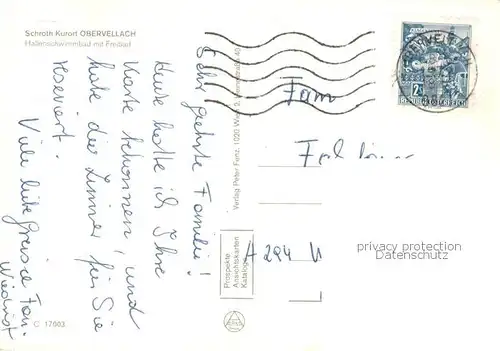 Schroth Kurort OBERVELLACH
Hallenschwimmbad mit Freibad
Sehr geehrte Familie!
Heute hatte ich Ihre
Karte bekommen und
habe die Zimmer für Sie
reserviert.
Viele liebe Grüsse Fam.
C 17003
Verlag Peter Fürtz, 1020 Wien 2,
Prospekte
Ansichtskarten
Kataloge
2
REPUBLIK ÖSTERREICH
OBERVELLACH
Fam
A 294
privacy protection
Datenschutz